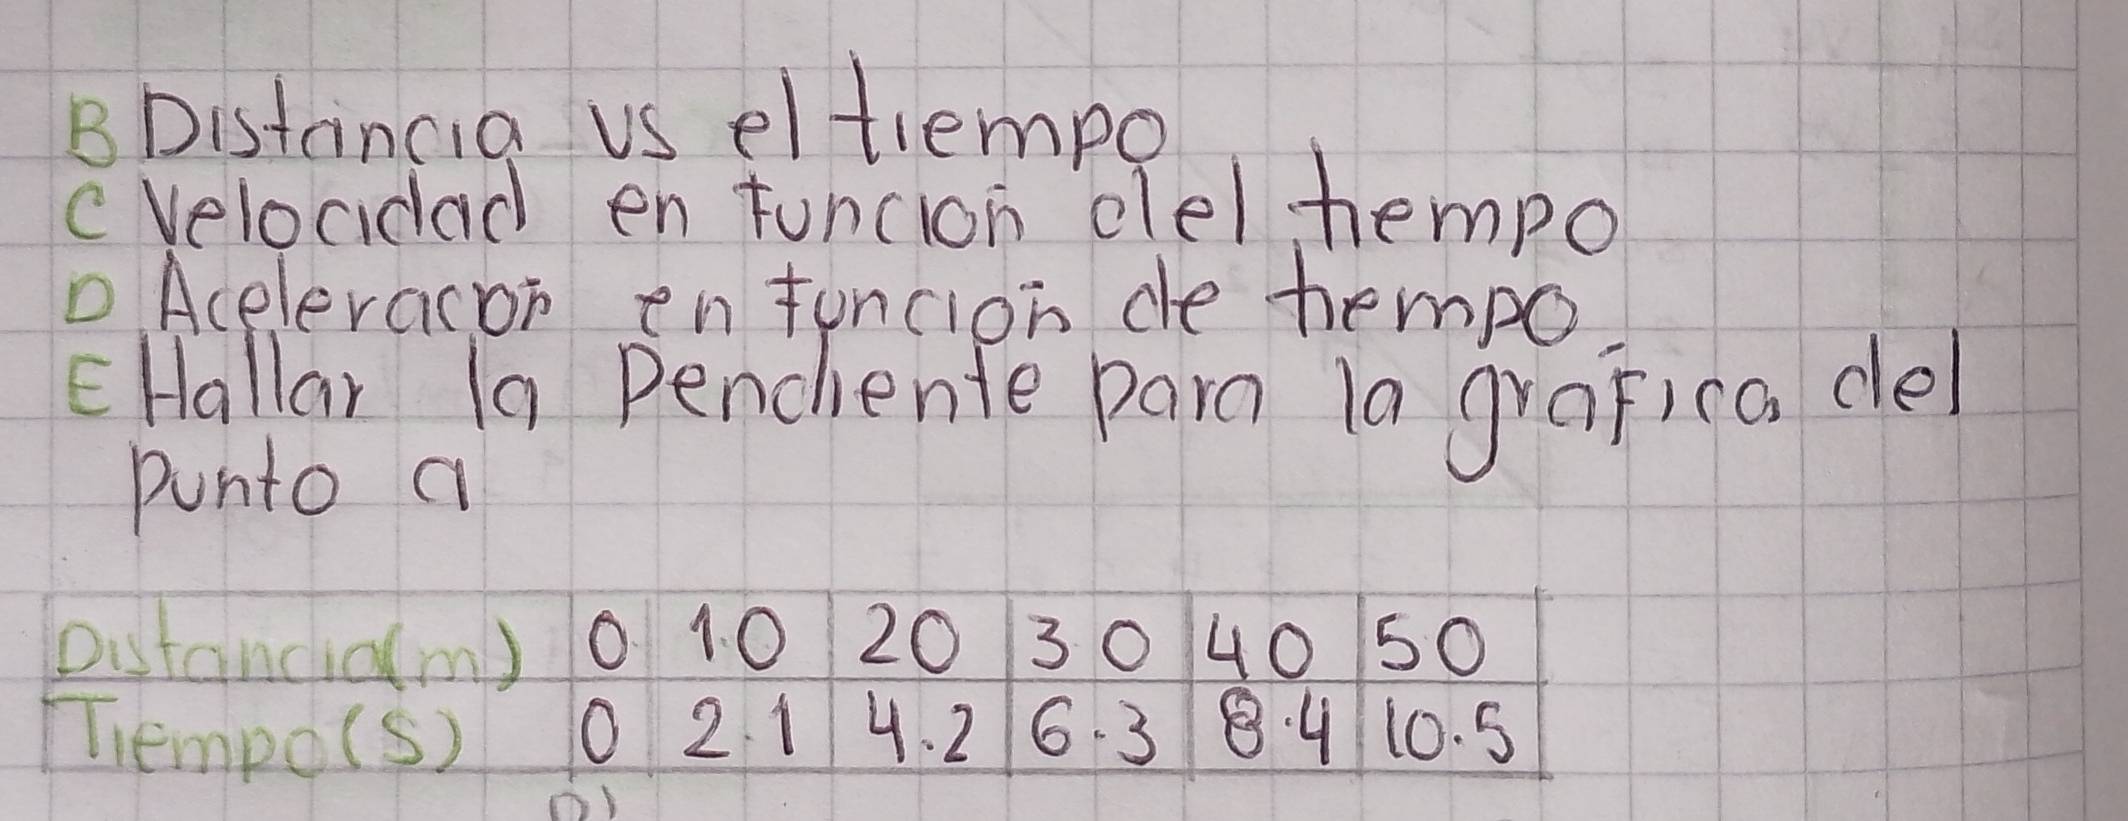 B Distancia vs el tiempo
C Velocidad en funcion del tiempo
D Aceleracion en funcion de tiempo
E Hallar la Pendiente para la grafica del
punto a
Distancia(m) 0 10 20 30 40 50
Tiempo(s) 0 2.1 4.2 6.3 8.4 10.5